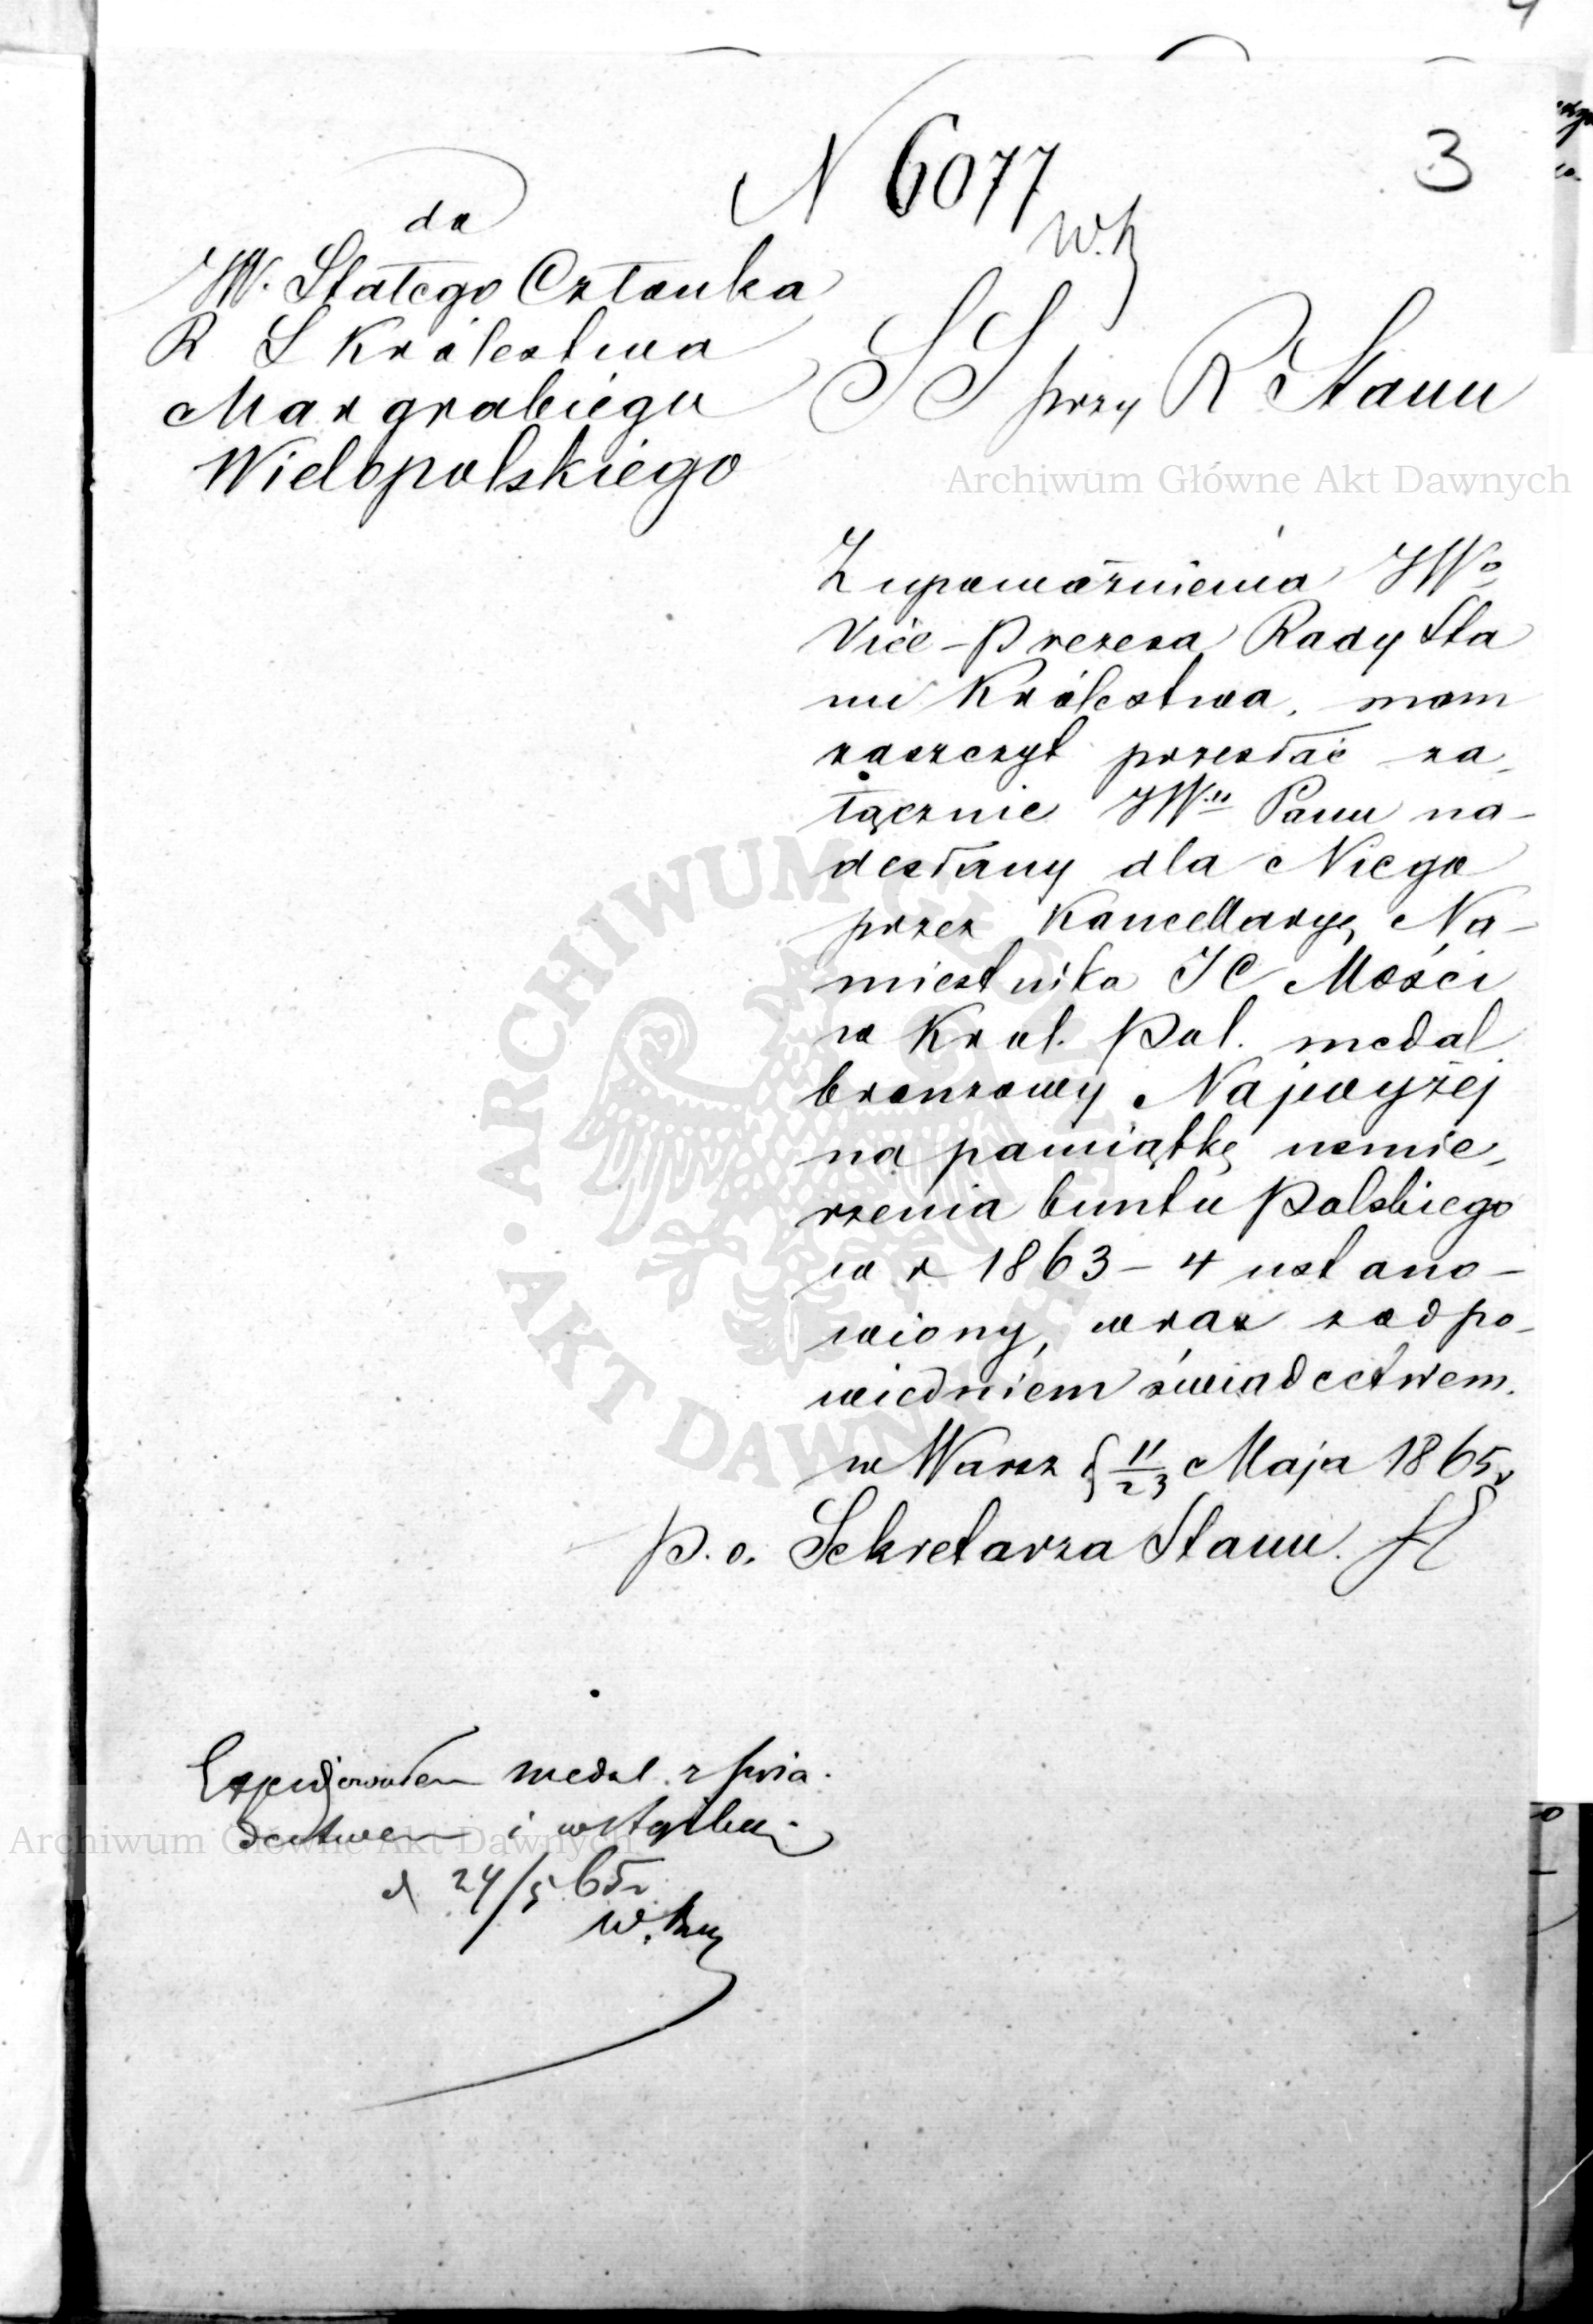 3
N 6077
do
JW. Stałego Członka
R S Królestwa
Margrabiego
Wielopolskiego
SS przy R Stanu
Archiwum Główne Akt Dawnych
Z upoważnienia JWo
Vice-Prezesa Rady Sta
nu Królestwa, mam
zaszczyt przesłać za,
łącznie JWu Panu na-
desłany dla Niego
przez Kancellaryę Na-
miestnika JC Mości
w Krol. Pol. medal
bronzowy Najwyżej
na pamiątkę usmie,
rzenia buntu Polskiego
w r 1863-4 ustano-
wiony, wraz z odpo-
wiedniem świadectwem.
w Warsz d 11/23 Maja 1865 r
p.o. Sekretarza Stanu.
Expedjowałem medal z świa-
dectwem i wstążką.
Archiwum Główne Akt Dawnych
d 24/5 65 r
ARCHIWUM GŁÓWNE
AKT DAWNYCH